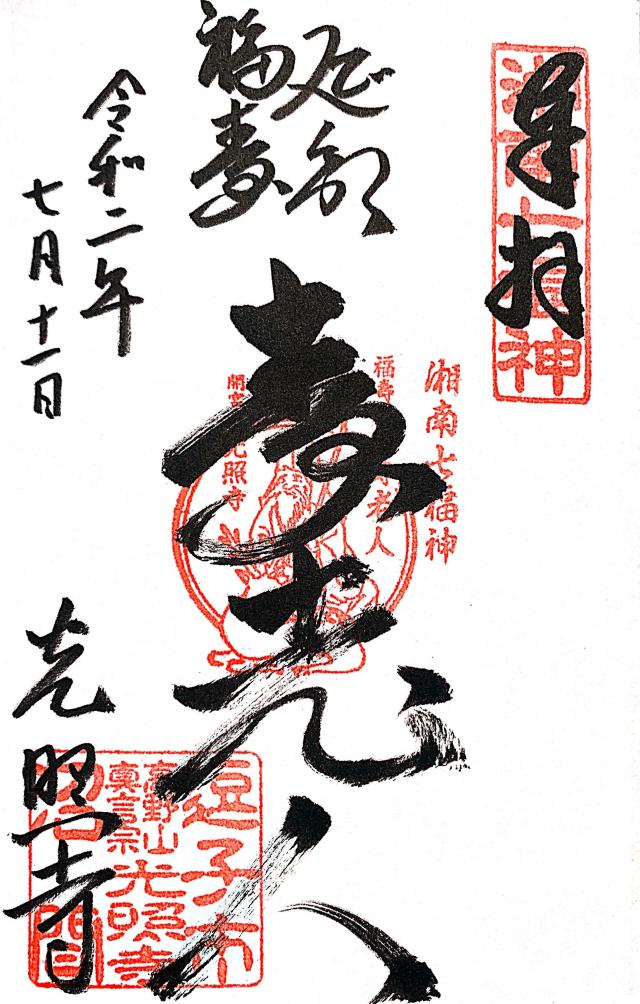 奉拝
湘南七福神
延命
福寿
寿老人
湘南七福神
福壽
寿老人
光照寺
令和二年
七月十一日
光照寺
逗子市
高野山
真言宗
光照寺
沼間